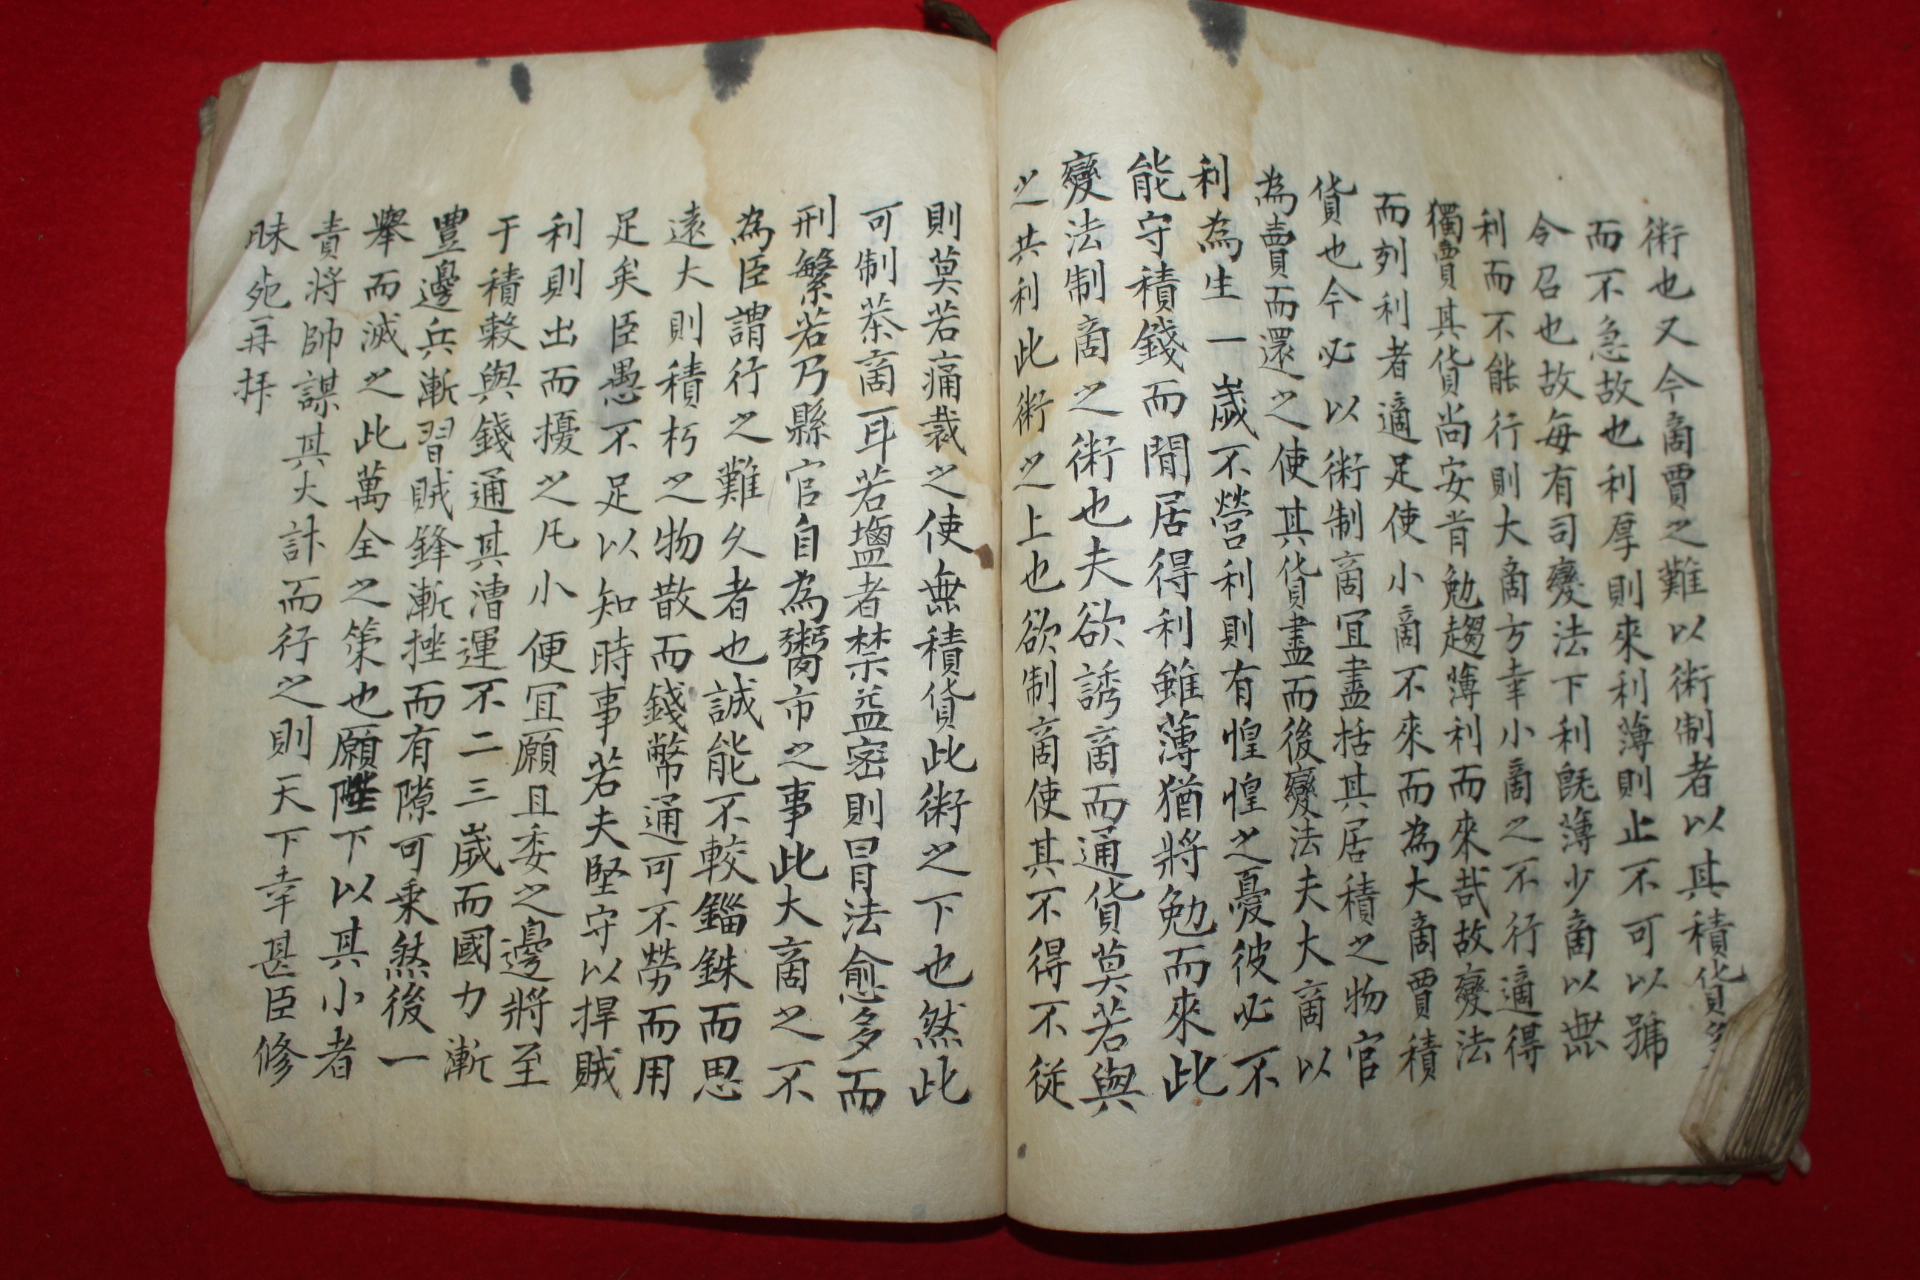 術也又今商賈之難以術制者以其積貨多
而不急故也利厚則來利薄則止不可以號
令召也故每有司變法下利旣薄少商以無
利而不能行則大商方幸小商之不行適得
獨賣其貨尚安肯勉趨薄利而來哉故變法
而列利者適足使小商不來而為大商賈積
貨也今必以術制商宜盡括其居積之物官
為賣而還之使其貨盡而後變法夫大商以
利為生一歲不營利則有惶惶之憂彼必不
能守積錢而閒居得利雖薄猶將勉而來此
變法制商之術也夫欲誘商而通貨莫若與
之共利此術之上也欲制商使其不得不從
則莫若痛裁之使無積貨此術之下也然此
可制茶商耳若鹽者禁益密則冒法愈多而
刑繁若乃縣官自為鬻市之事此大商之不
為臣謂行之難久者也誠能不較錙銖而思
遠大則積朽之物散而錢幣通可不勞而用
足矣臣愚不足以知時事若夫堅守以捍賊
利則出而擾之凡小便宜願且委之邊將至
于積穀與錢通其漕運不二三歲而國力漸
豊邊兵漸習賊鋒漸挫而有隙可乗然後一
擧而滅之此萬全之策也願陛下以其小者
責將帥謀其大計而行之則天下幸甚臣修
昧死再拜